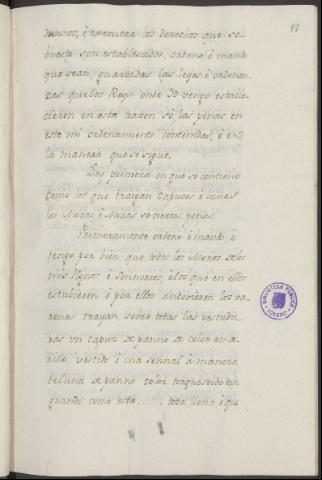 97
dannos, è executar los derechos que so-
bresto son establescidos, ordeno, è mando
que sean guardadas las leyes è ordenan-
zas quelos Reyes onde Io vengo estable-
cieron en esta razon so las penas en
este mi ordenamiento contenidas, è en
la manera que se sigue.
Ley primera en que se contiene
como los que trayan capuces è lunas
los Moros è Moras so ciertas penas
Primeramente ordeno è mando è
tengo por bien que todos los Moros delos
mis Regnos è Sennorios, è los que en ellos
estubieren ò por ellos andovieren los va-
rones trayan sobre todas las vestidu-
ras un capuz de panno de color ama-
rillo vestido è una sennal à manera
de luna de panno color torquesado tan
grande como esta ..... toda llena, è que
BIBLIOTECA PUBLICA
TOLEDO